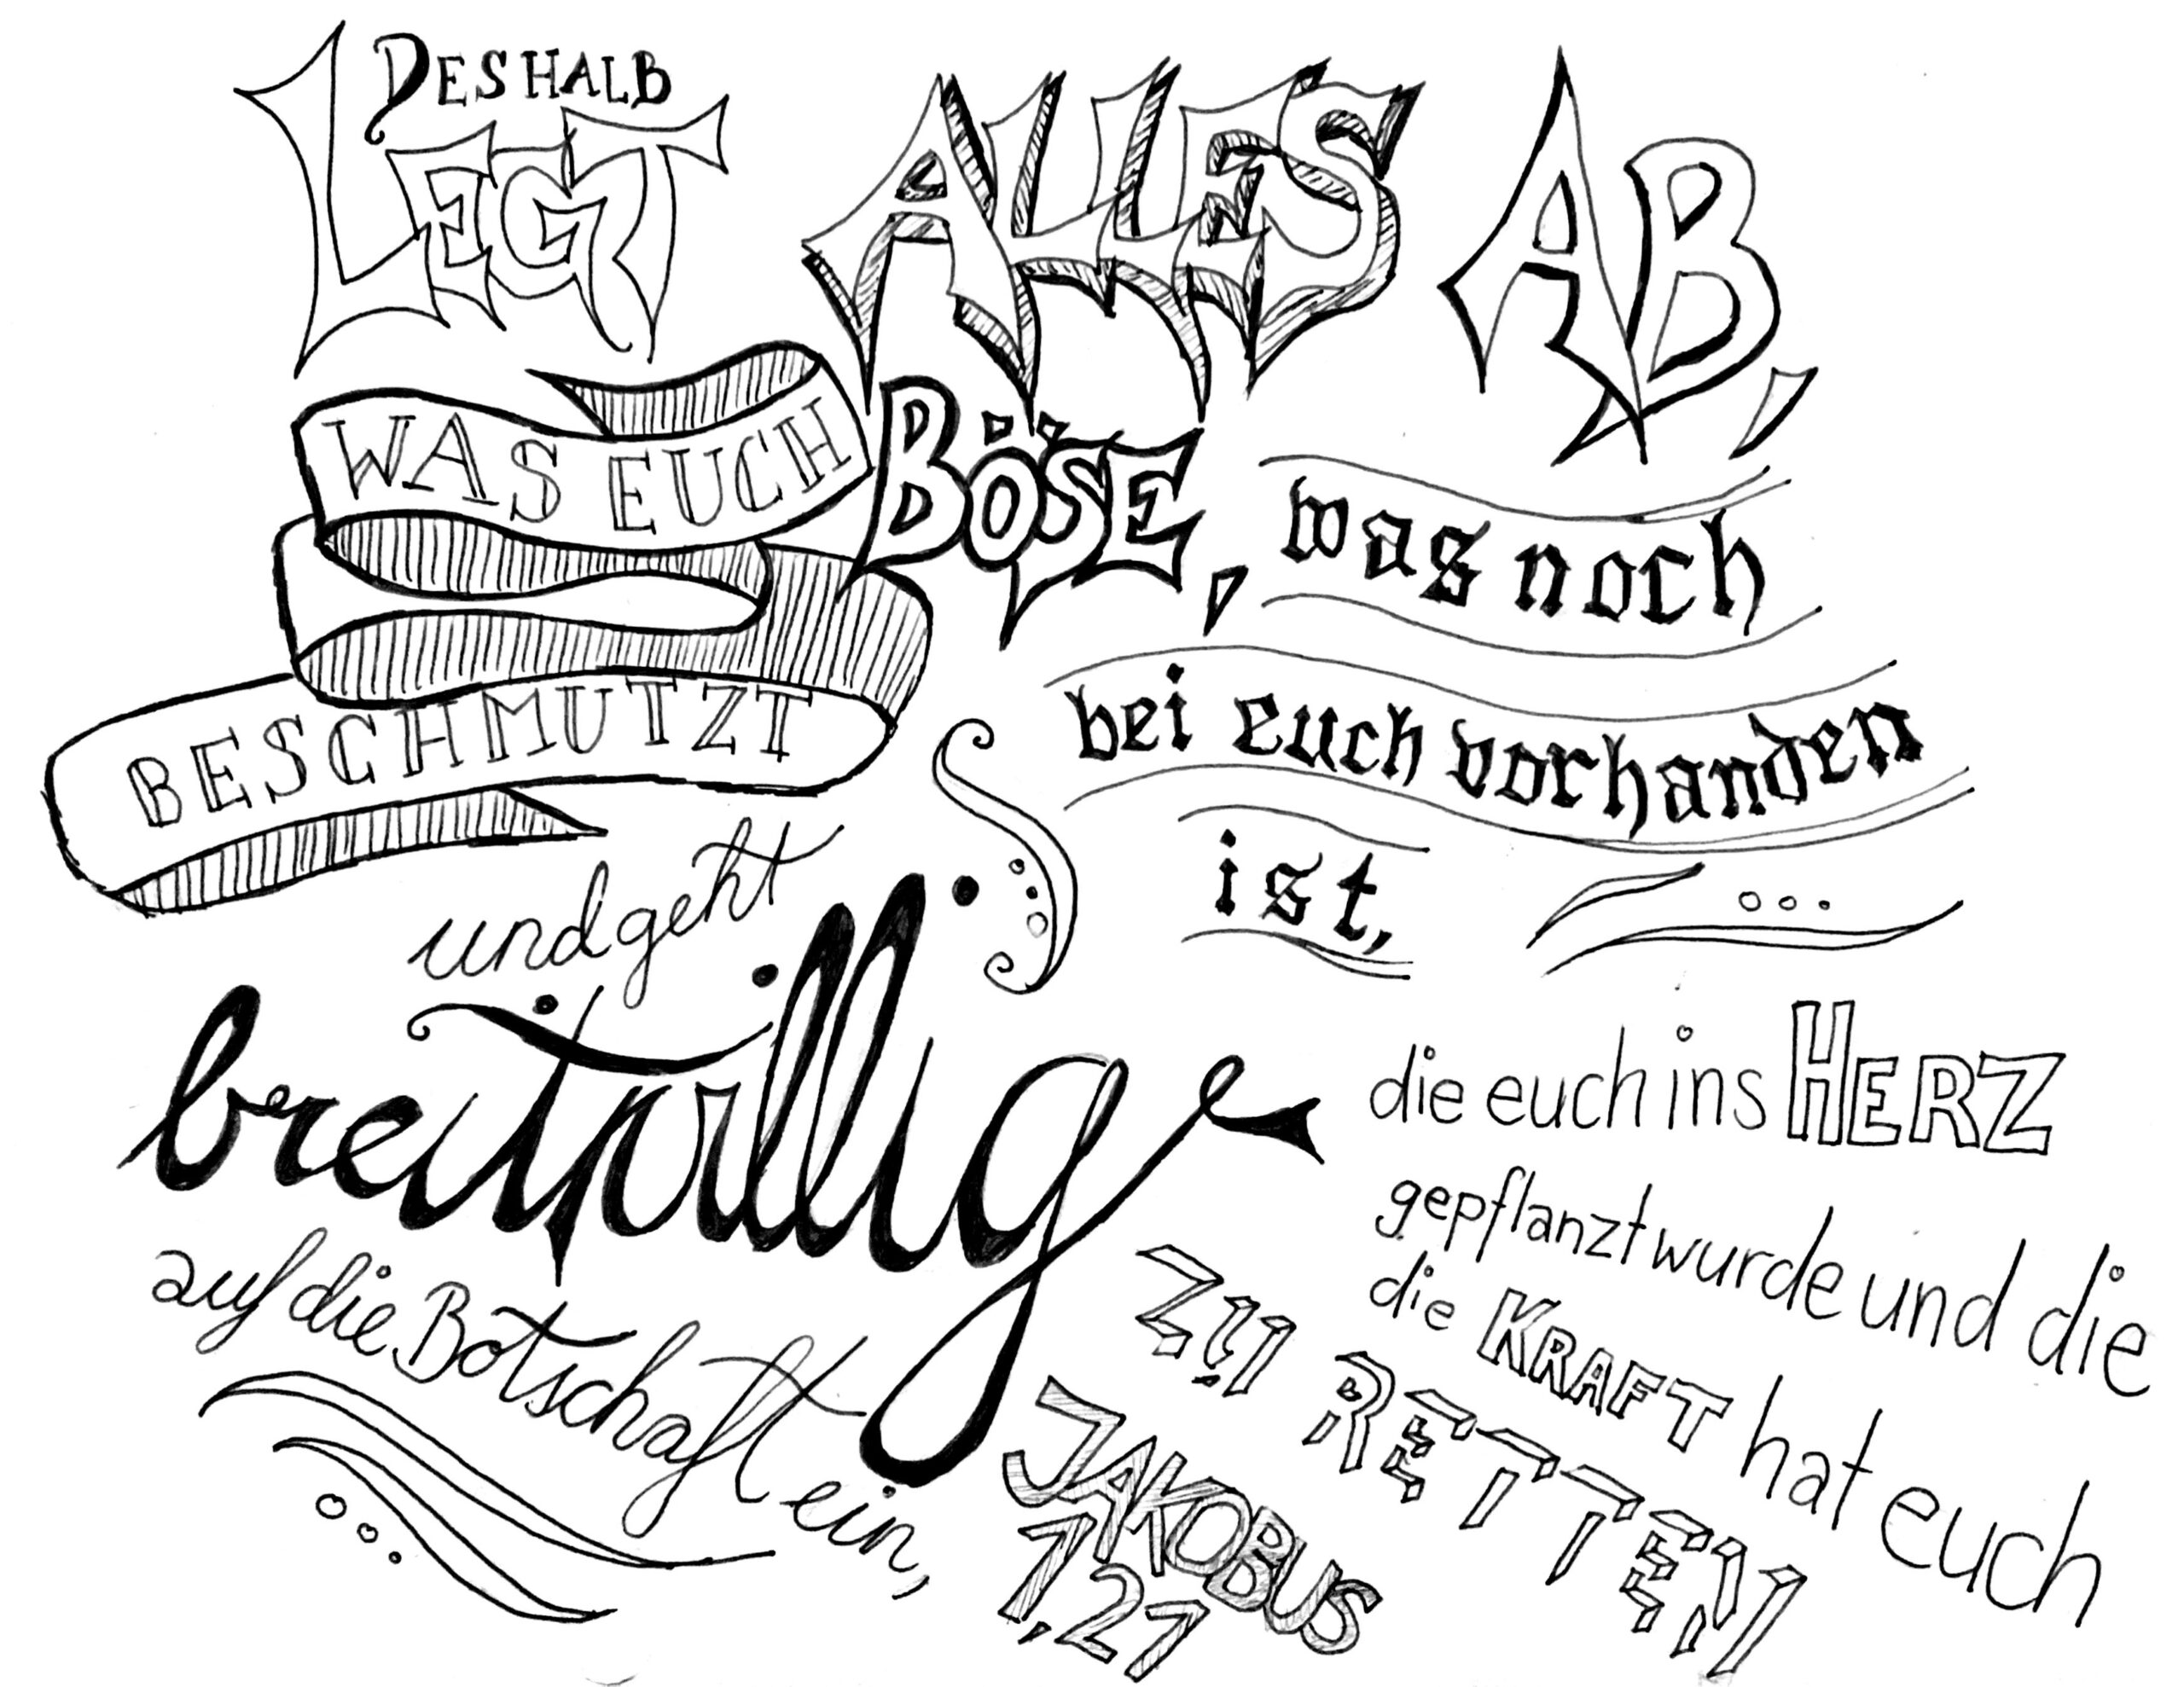 DESHALB
LEGT ALLES AB,
WAS EUCH
BESCHMUTZT
BÖSE, was noch
bei euch vorhanden
ist,
und geht
breitwillig
auf die Botschaft ein,
die euch ins HERZ
gepflanzt wurde und die
die KRAFT hat euch
ZU RETTEN
JAKOBUS
1,21